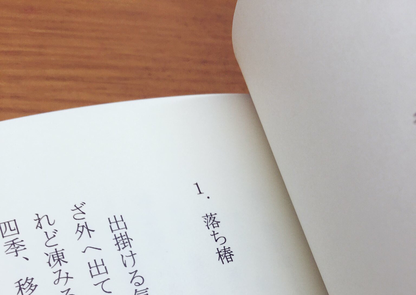 1. 落ち椿
出掛ける気
ざ外へ出て
れど凍みる
四季、移